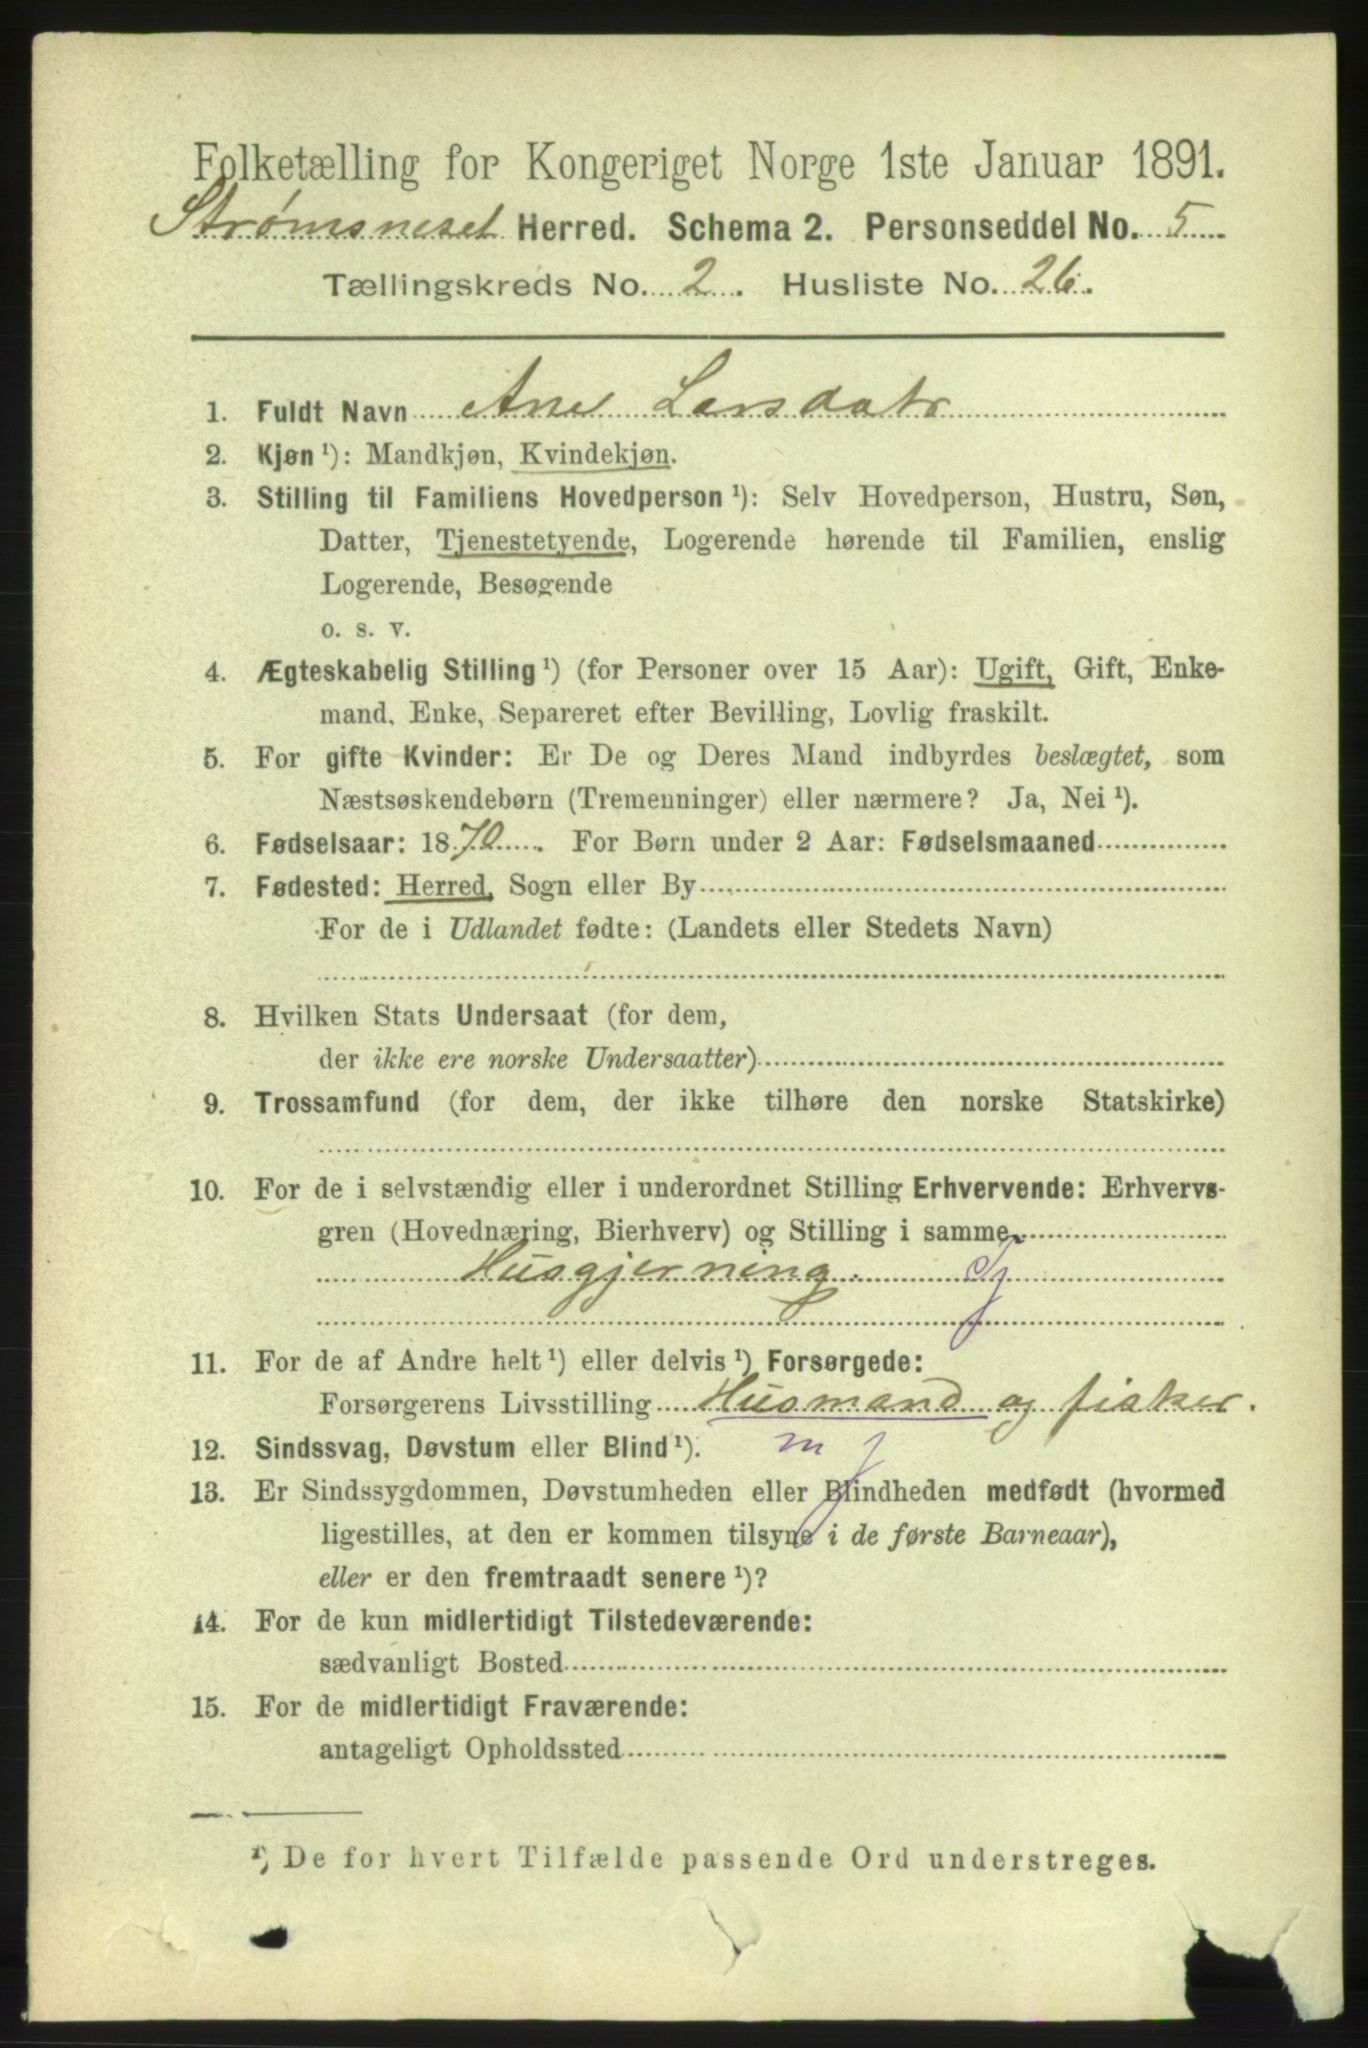 Folketælling for Kongeriget Norge 1ste Januar 1891.
Strømsneset Herred. Schema 2. Personseddel No. 5
Tællingskreds No. 2. Husliste No. 26.
1. Fuldt Navn Ane Larsdatr
2. Kjøn ¹): Mandkjøn, Kvindekjøn.
3. Stilling til Familiens Hovedperson ¹): Selv Hovedperson, Hustru, Søn,
Datter, Tjenestetyende, Logerende hørende til Familien, enslig
Logerende, Besøgende
o. s. v.
4. Ægteskabelig Stilling ¹) (for Personer over 15 Aar): Ugift, Gift, Enke-
mand, Enke, Separeret efter Bevilling, Lovlig fraskilt.
5. For gifte Kvinder: Er De og Deres Mand indbyrdes beslægtet, som
Næstsøskendebørn (Tremenninger) eller nærmere? Ja, Nei ¹).
6. Fødselsaar: 1870. For Børn under 2 Aar: Fødselsmaaned
7. Fødested: Herred, Sogn eller By
For de i Udlandet fødte: (Landets eller Stedets Navn)
8. Hvilken Stats Undersaat (for dem,
der ikke ere norske Undersaatter)
9. Trossamfund (for dem, der ikke tilhøre den norske Statskirke)
10. For de i selvstændig eller i underordnet Stilling Erhvervende: Erhvervs-
gren (Hovednæring, Bierhverv) og Stilling i samme
Husgjerning. Tj
11. For de af Andre helt ¹) eller delvis ¹) Forsørgede:
Forsørgerens Livsstilling Husmand og fisker.
12. Sindssvag, Døvstum eller Blind ¹). m j
13. Er Sindssygdommen, Døvstumheden eller Blindheden medfødt (hvormed
ligestilles, at den er kommen tilsyne i de første Barneaar),
eller er den fremtraadt senere ¹)?
14. For de kun midlertidigt Tilstedeværende:
sædvanligt Bosted
15. For de midlertidigt Fraværende:
antageligt Opholdssted
¹) De for hvert Tilfælde passende Ord understreges.